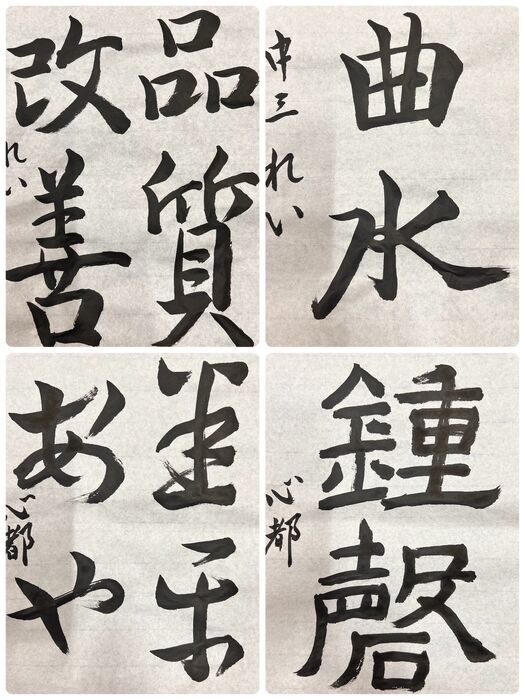 品質
改善
れい
曲水
中三 れい
あや
心都
鍾磬
心都